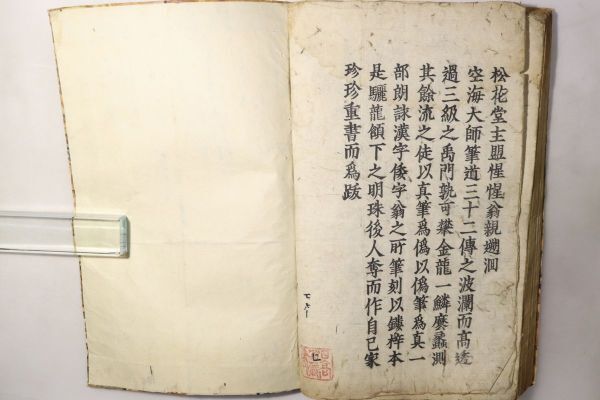 松花堂主盟惺惺翁親遡洄
空海大師筆道三十二傳之波瀾而高透
過三級之禹門孰可攀金龍一鱗麼蠡測
其餘流之徒以真筆爲僞以僞筆爲真一
部朗詠漢字倭字翁之所筆刻以鏤梓本
是驪龍頷下之明珠後人奪而作自己家
珍珍重書而爲跋